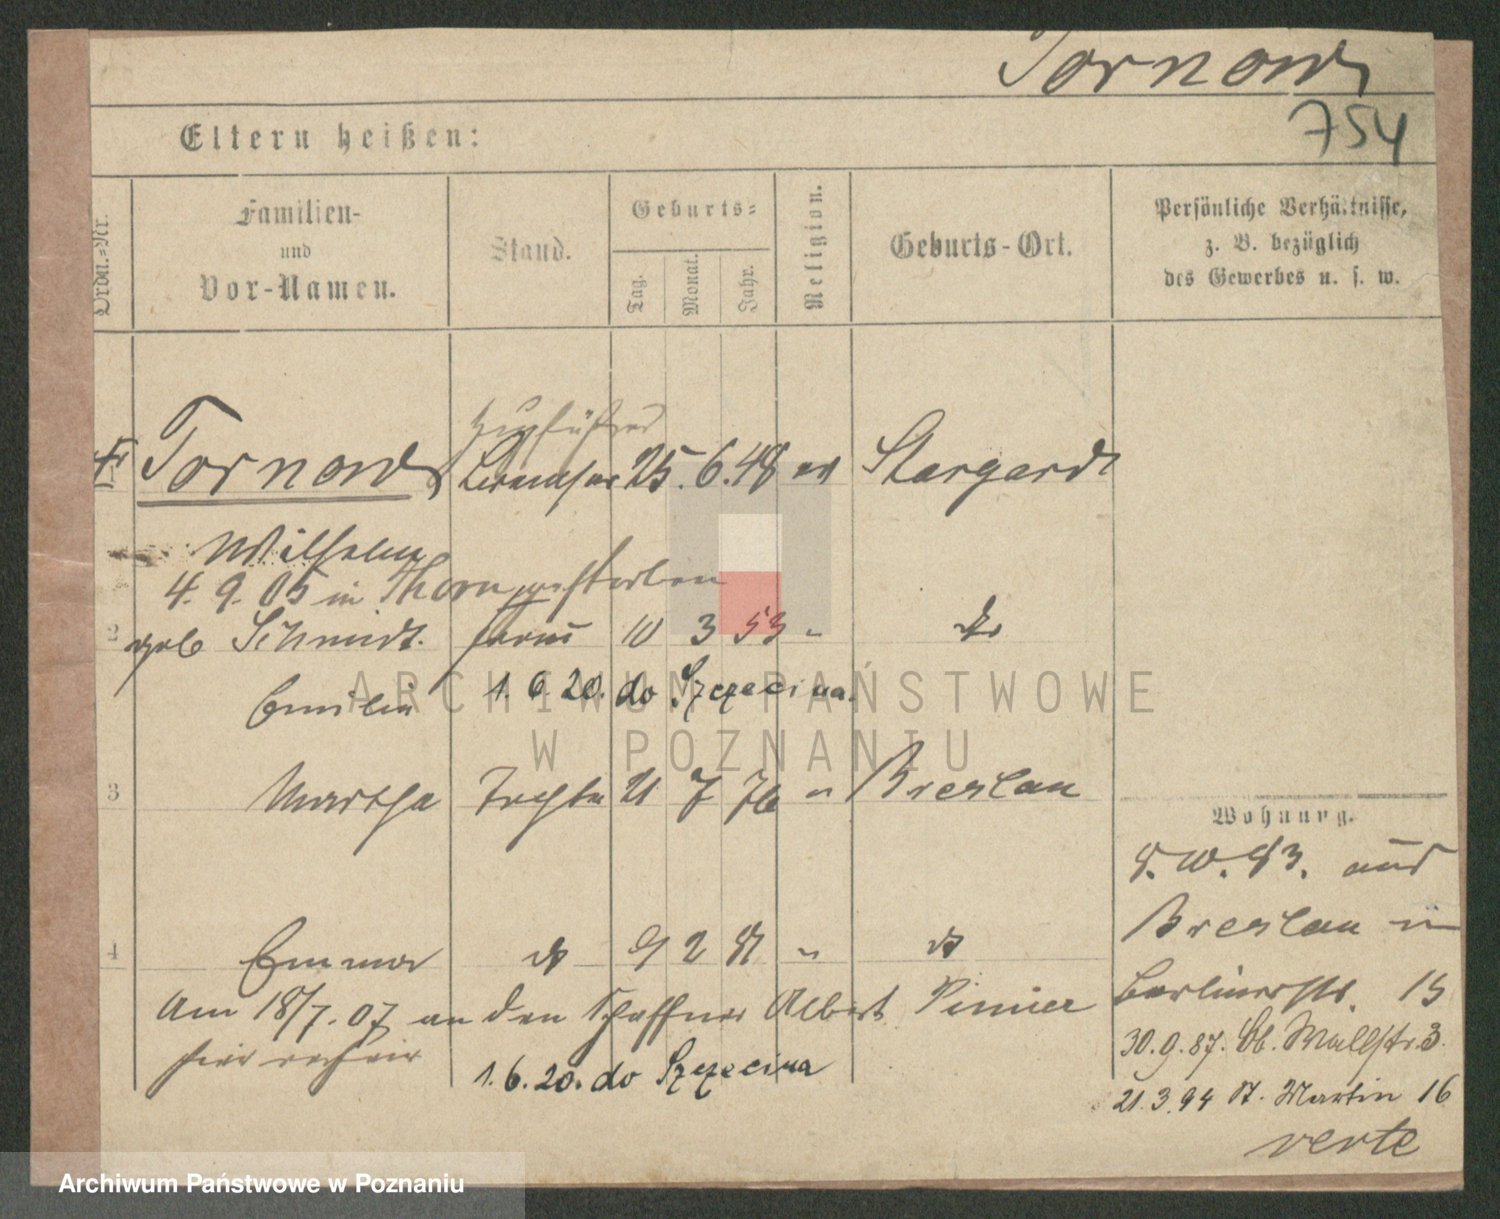 Tornow
754
Eltern heißen:
Ordn.-Nr.
Familien-
und
Vor-Namen.
Stand.
Geburts-
Tag.
Monat.
Jahr.
Religion.
Geburts-Ort.
Persönliche Verhältnisse,
z. B. bezüglich
des Gewerbes u. s. w.
Zugführer
Tornow Bremser 25. 6. 48 ev Stargard
Wilhelm
4. 9. 05 in Thorn gestorben
2 geb Schmidt. Frau 10 3 53 "
Emilie 1. 6. 20. do Szczecina.
ARCHIWUM PAŃSTWOWE
W POZNANIU
3 Martha Tochter 21 7 76 " Breslau
Wohnung.
8. 10. 83. aus
Breslau
4 Emma do 9 2 81 " do
Berlinerstr. 15
Am 18/7. 07 an den Schaffner Albert
30. 9. 87. Ob. Wallstr. 3.
hier
1. 6. 20. do Szczecina
21. 3. 94 St. Martin 16
verte
Archiwum Państwowe w Poznaniu